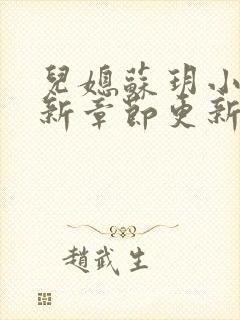 兒媳蘇玥小
新章節更新
趙武生